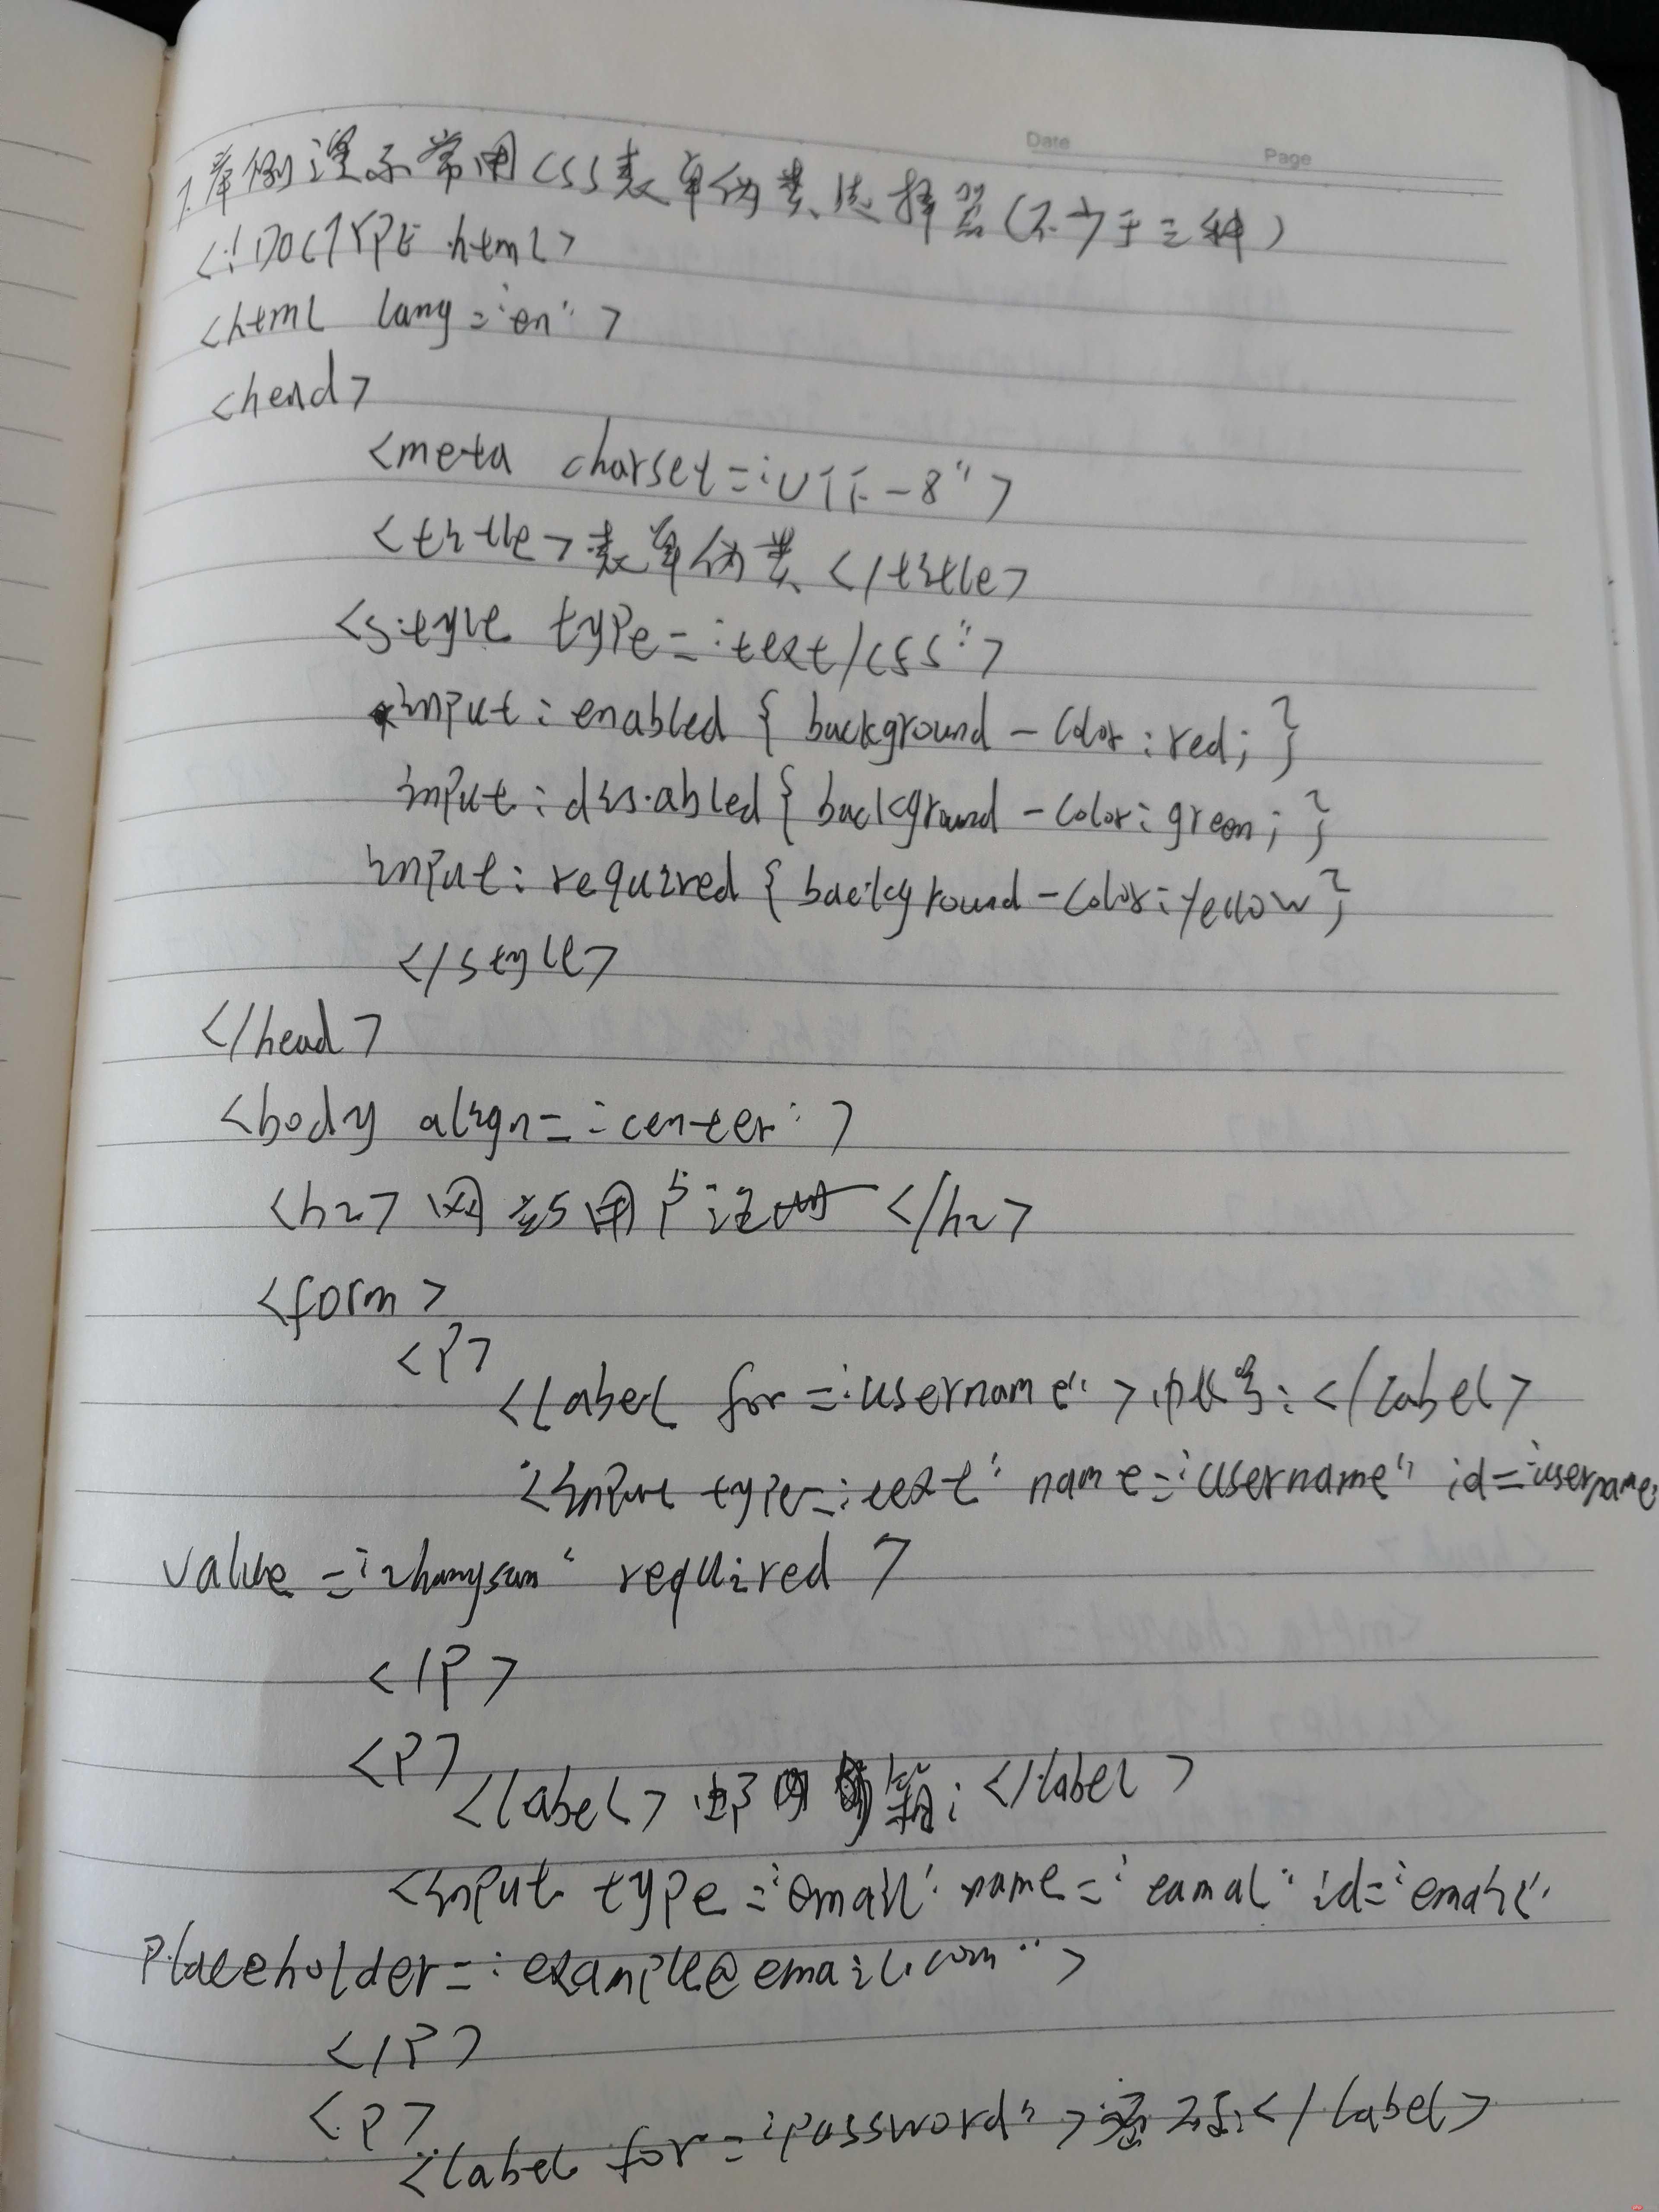 Date Page
1.举例演示常用CSS表单伪类选择器(不少于三种)
<!DOCTYPE html>
<html lang="en">
<head>
<meta charset="UTF-8">
<title>表单伪类</title>
<style type="text/css">
input:enabled{background-color:red;}
input:disabled{background-color:green;}
input:required{background-color:yellow}
</style>
</head>
<body align="center">
<h2>网站用户注册</h2>
<form>
<P>
<label for="username">账号:</label>
<input type="text" name="username" id="username"
value="zhangsan" required>
</P>
<P>
<label>邮箱:</label>
<input type="email" name="eamal" id="email"
Placeholder="example@email.com">
</P>
<P>
<label for="password">密码:</label>